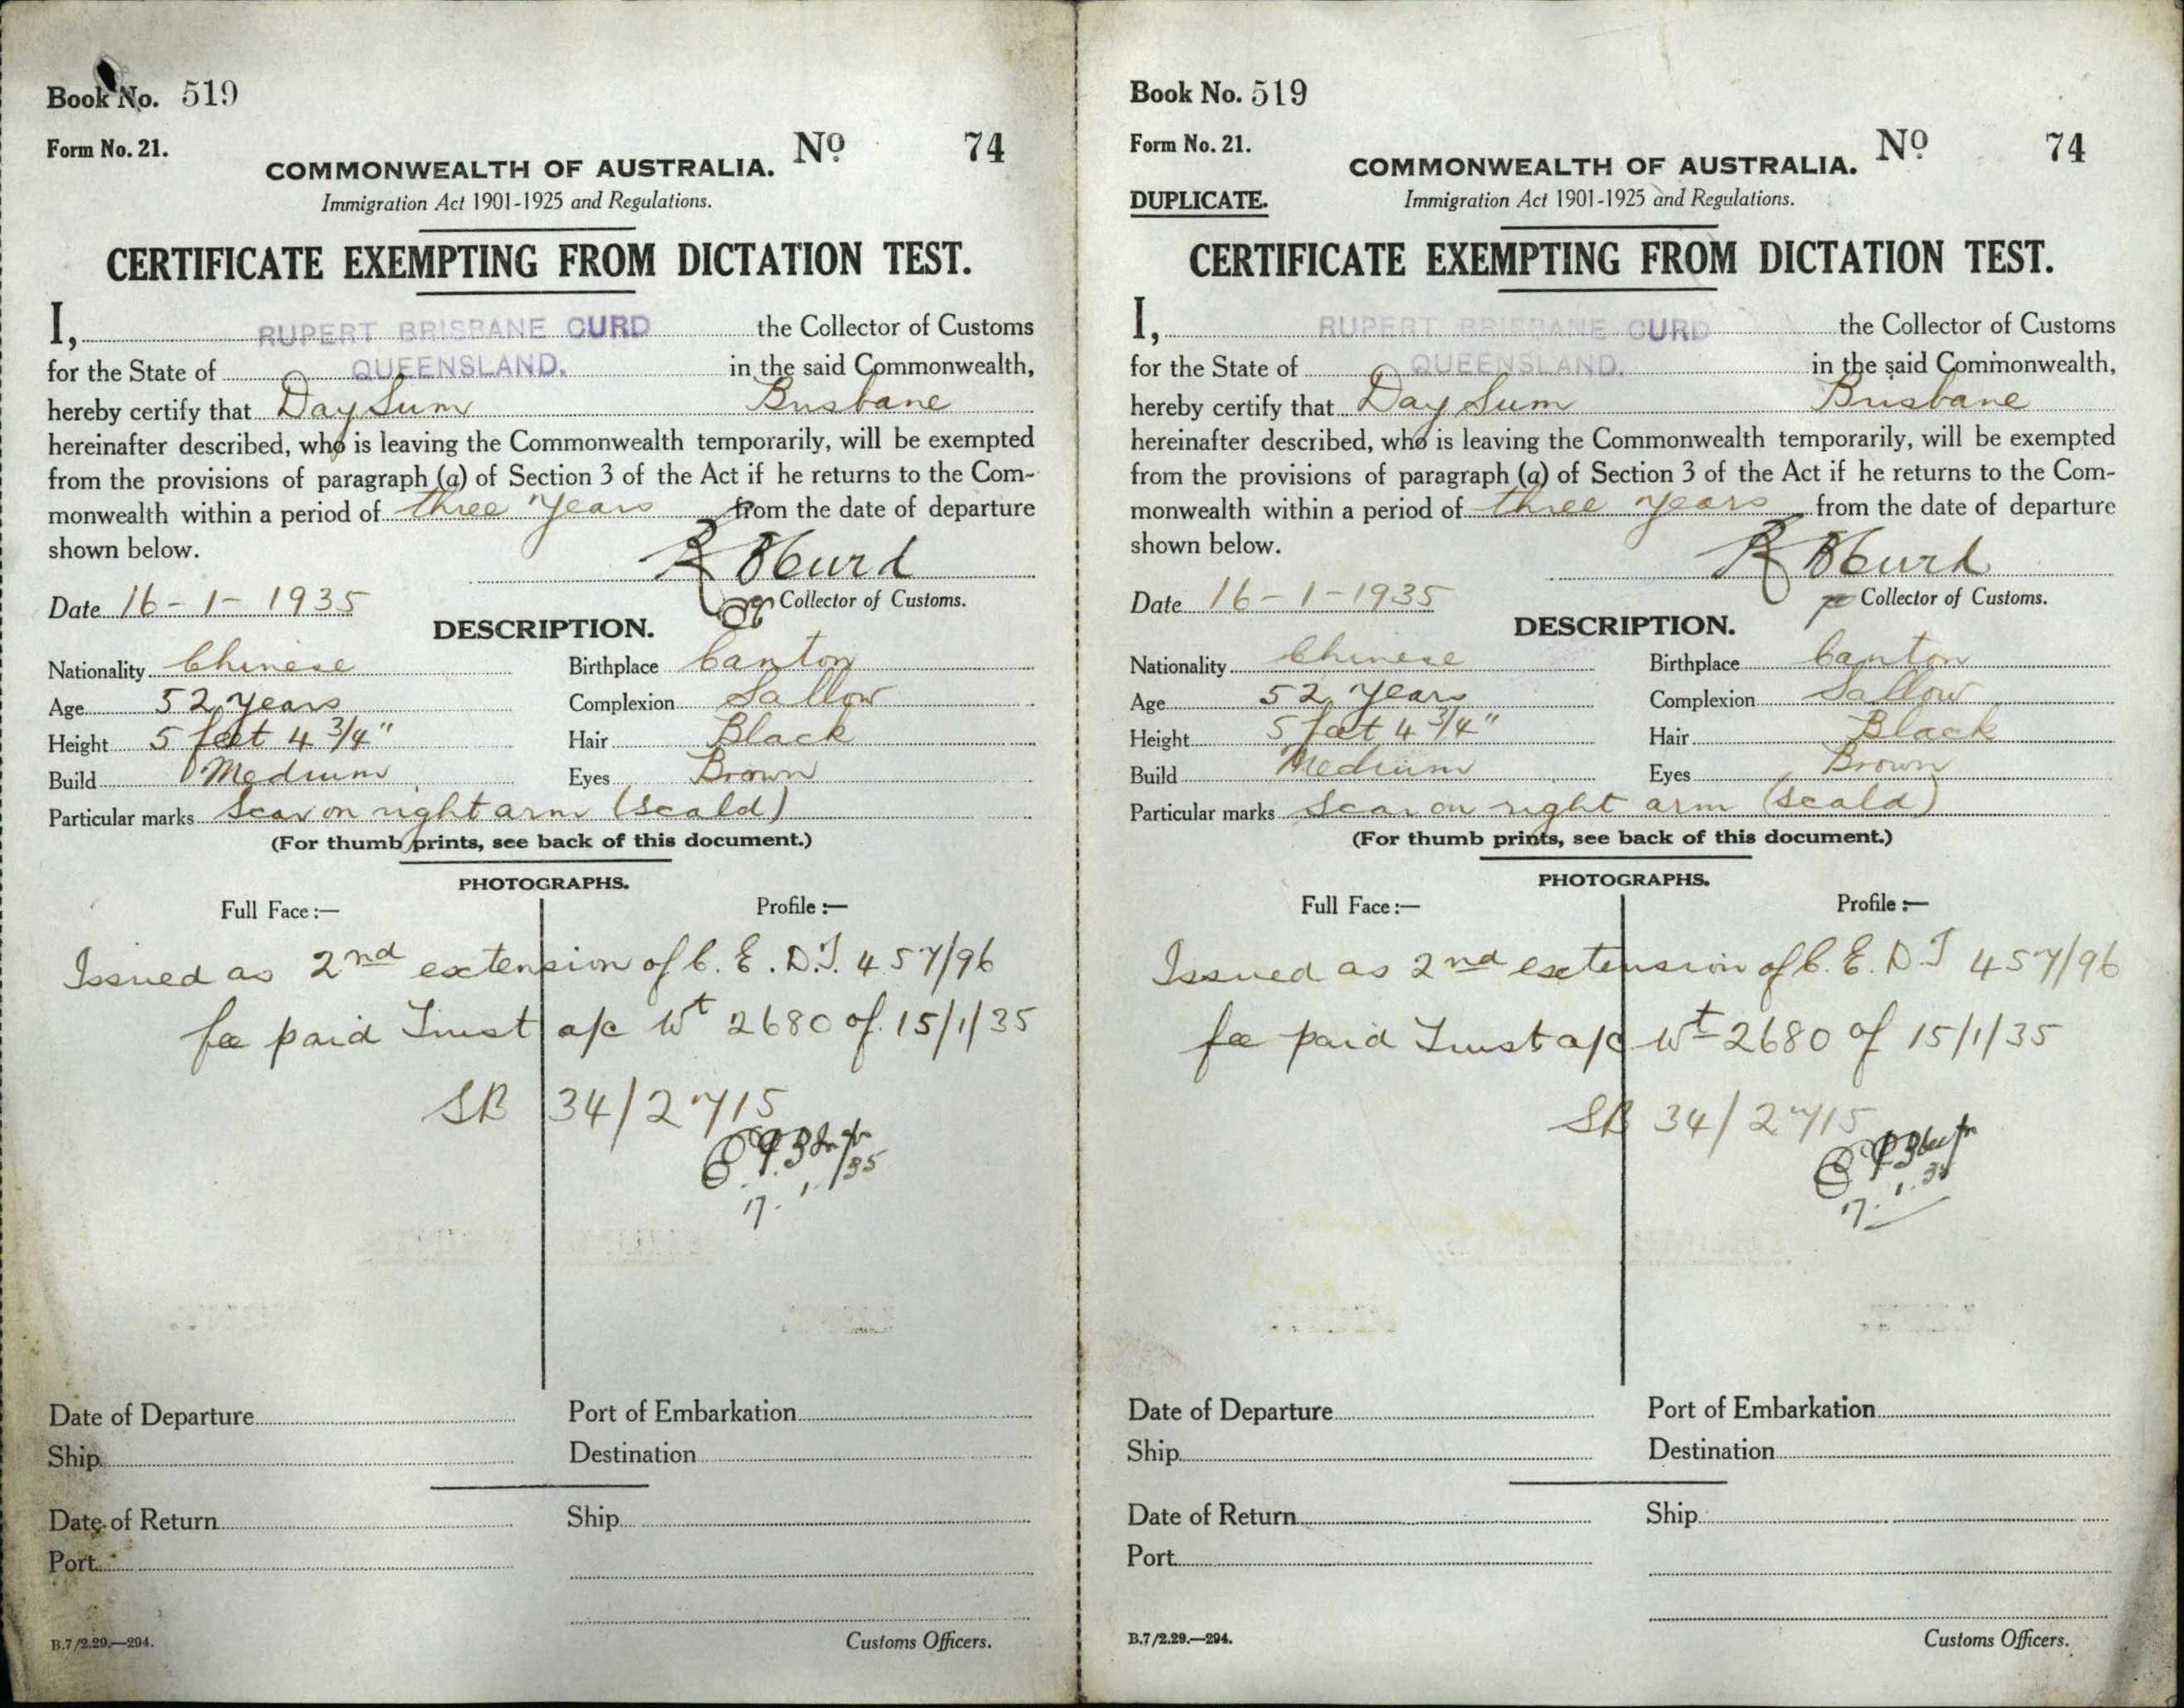 Book No. 519
Form No. 21.
No 74
COMMONWEALTH OF AUSTRALIA.
Immigration Act 1901-1925 and Regulations.
CERTIFICATE EXEMPTING FROM DICTATION TEST.
I, RUPERT BRISBANE CURD the Collector of Customs
for the State of QUEENSLAND. in the said Commonwealth,
hereby certify that Day Sum Brisbane
hereinafter described, who is leaving the Commonwealth temporarily, will be exempted
from the provisions of paragraph (a) of Section 3 of the Act if he returns to the Com-
monwealth within a period of three years from the date of departure
shown below.
R B Curd
Date 16-1-1935 Collector of Customs.
DESCRIPTION.
Nationality Chinese Birthplace Canton
Age 52 years Complexion Sallow
Height 5 feet 4 3/4" Hair Black
Build Medium Eyes Brown
Particular marks Scar on right arm (scald)
(For thumb prints, see back of this document.)
PHOTOGRAPHS.
Full Face:— Profile:—
Issued as 2nd extension of C.E.D.T. 457/96
fee paid Trust a/c Wt 2680 of 15/1/35
SB 34/2715
17.1./35
Date of Departure Port of Embarkation
Ship Destination
Date of Return Ship
Port
B.7/2.29.—294. Customs Officers.
Book No. 519
Form No. 21.
No 74
COMMONWEALTH OF AUSTRALIA.
DUPLICATE. Immigration Act 1901-1925 and Regulations.
CERTIFICATE EXEMPTING FROM DICTATION TEST.
I, RUPERT BRISBANE CURD the Collector of Customs
for the State of QUEENSLAND. in the said Commonwealth,
hereby certify that Day Sum Brisbane
hereinafter described, who is leaving the Commonwealth temporarily, will be exempted
from the provisions of paragraph (a) of Section 3 of the Act if he returns to the Com-
monwealth within a period of three years from the date of departure
shown below.
R B Curd
Date 16-1-1935 Collector of Customs.
DESCRIPTION.
Nationality Chinese Birthplace Canton
Age 52 years Complexion Sallow
Height 5 feet 4 3/4" Hair Black
Build Medium Eyes Brown
Particular marks Scar on right arm (scald)
(For thumb prints, see back of this document.)
PHOTOGRAPHS.
Full Face:— Profile:—
Issued as 2nd extension of C.E.D.T 457/96
fee paid Trust a/c Wt 2680 of 15/1/35
SB 34/2715
17.1.35
Date of Departure Port of Embarkation
Ship Destination
Date of Return Ship
Port
B.7/2.29.—294. Customs Officers.